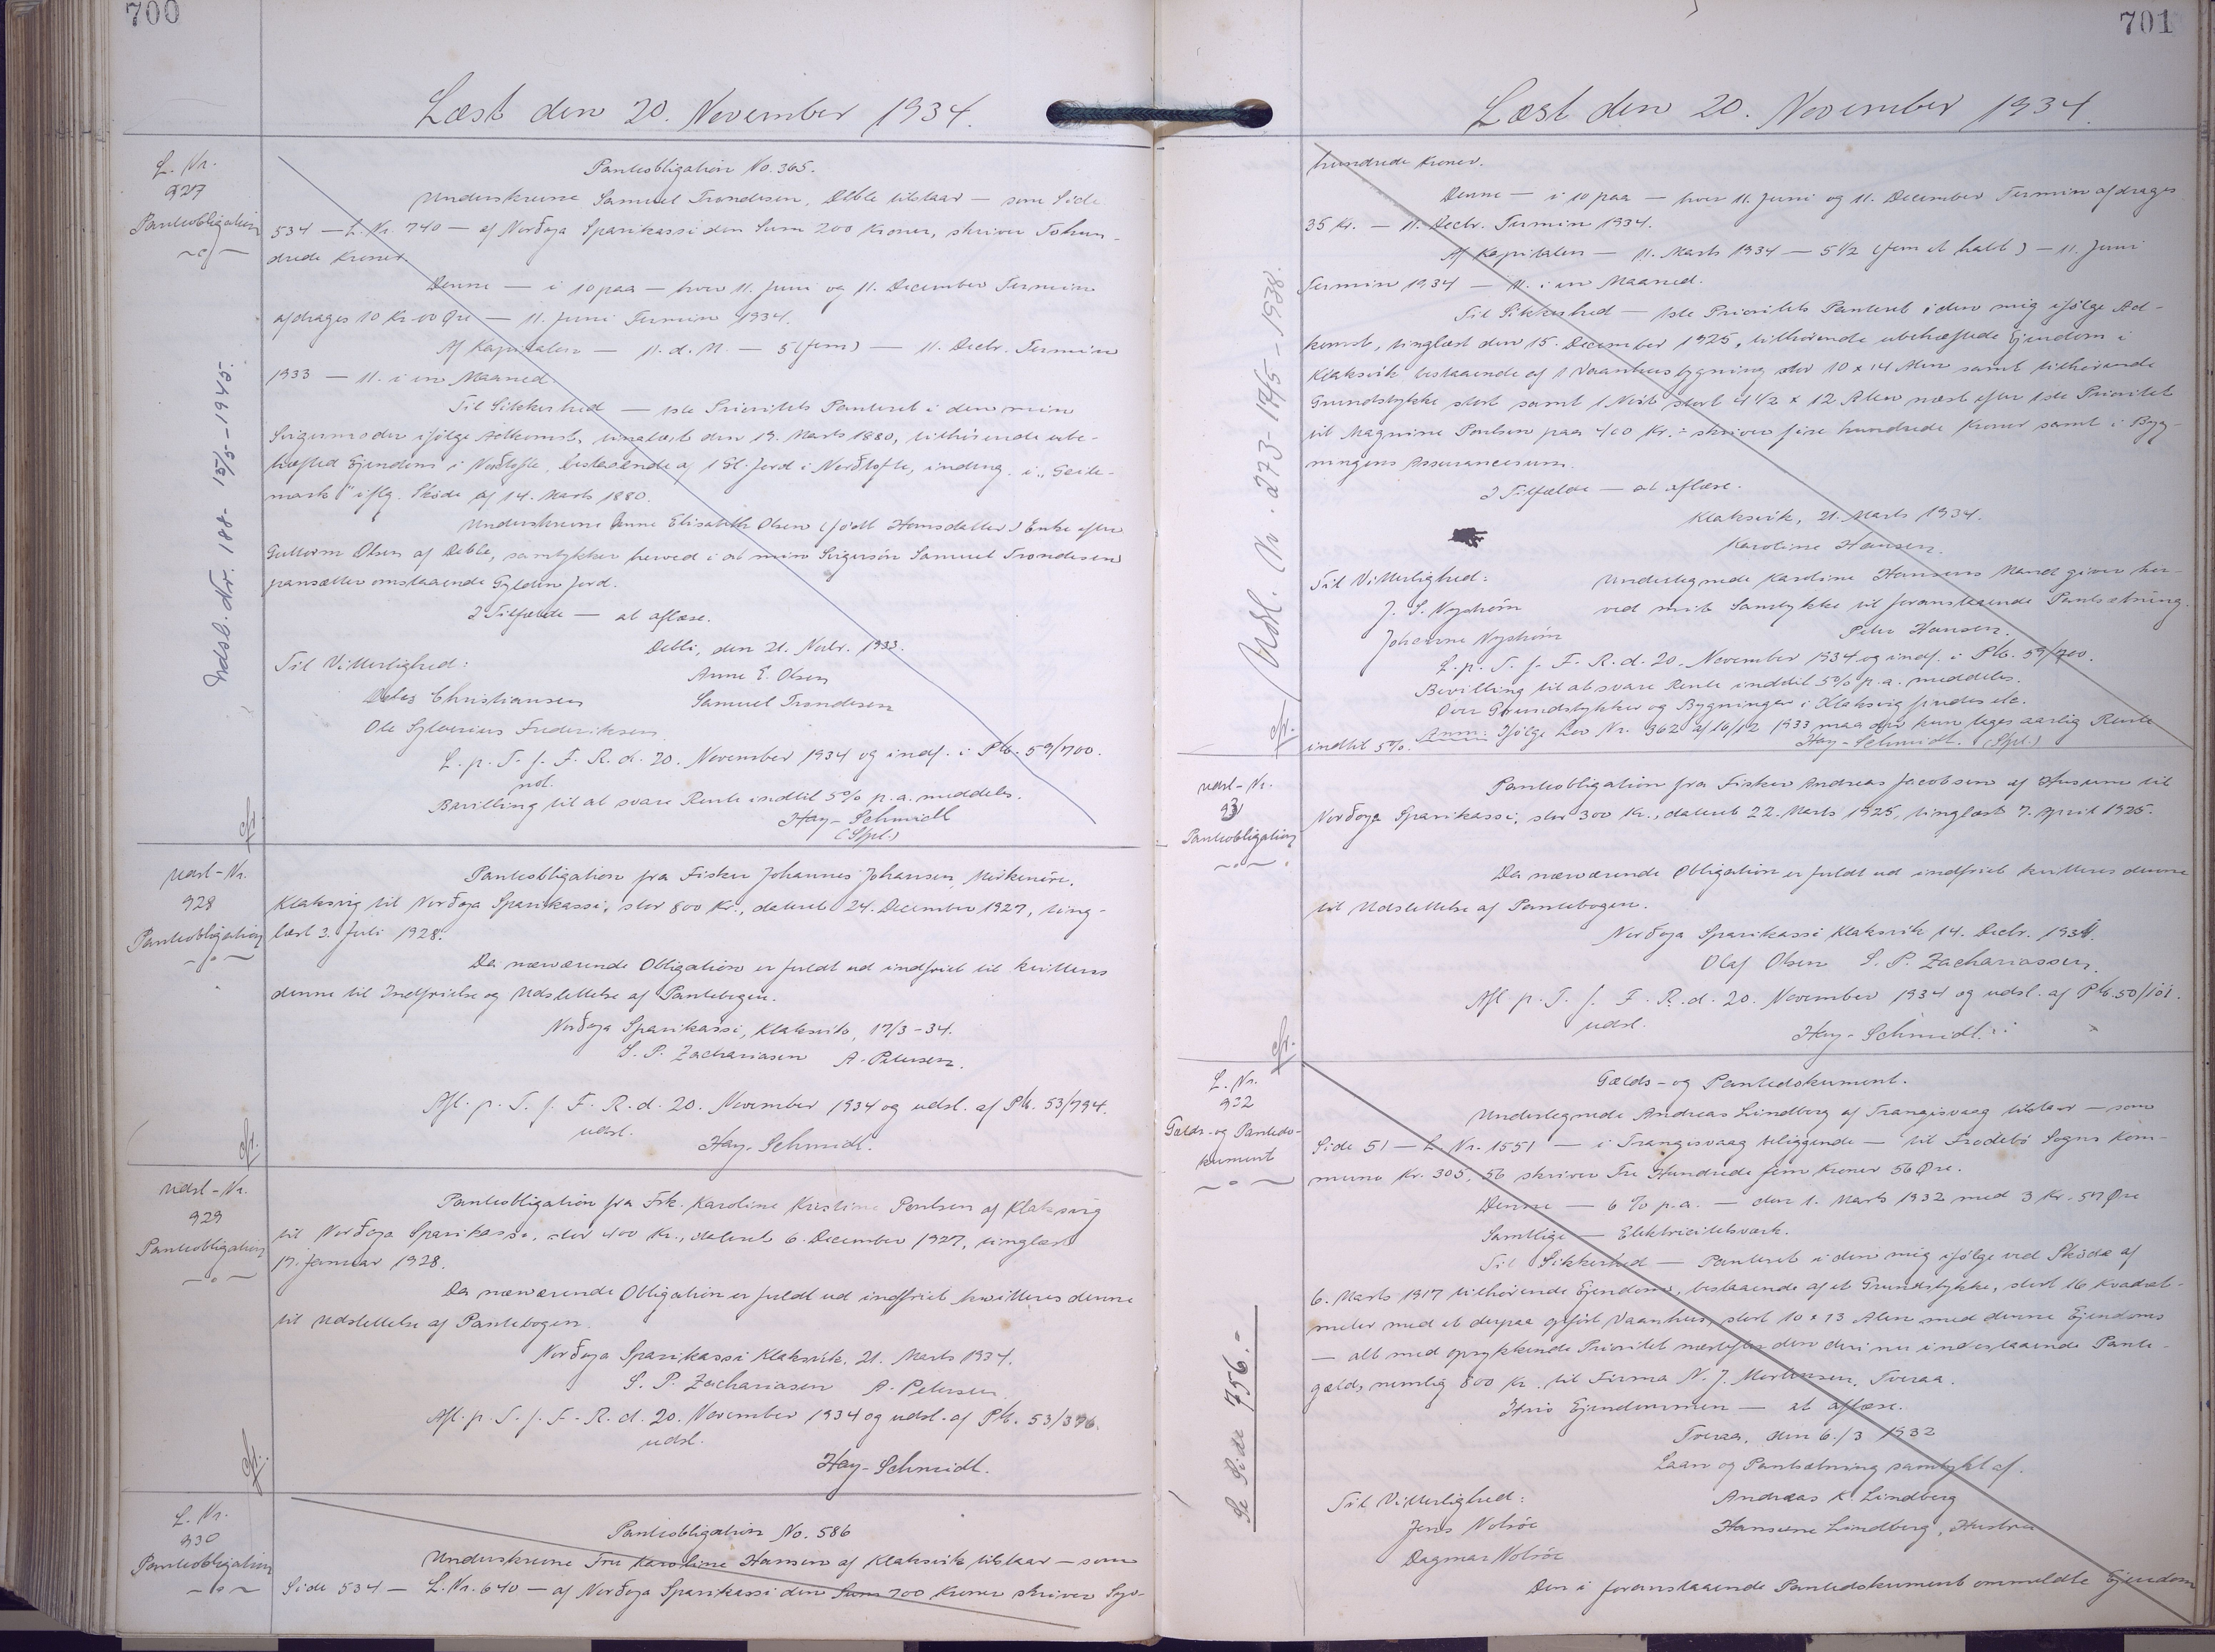 700
Læst den 20. November 1934.
L. Nr.
927
Panteobligation
Panteobligation No. 365.
Underskrevne Samuel Trondesen, Deble tilstaar — som Side
534 — L. Nr. 740 — af Norðoya Sparikassi den Sum 200 Kroner, skriver Tohun-
drede Kroner.
Denne — i 10 paa — hver 11. Juni og 11. December Termin
afdrages 10 Kr. 00 Øre — 11. Juni Termin 1934.
Af Kapitalen — 11. d. M. — 5 (fem) — 11. Decbr. Termin
1933 — 11. i en Maaned.
Til Sikkerhed — 1ste Prioritets Panteret i den min
Svigermoder ifølge Adkomst, tinglæst den 19. Marts 1880, tilhørende ube-
hæfted Ejendom i Norðtofte, bestaaende af 1 Gl. Jord i Norðtofte, indeng. i "Geite-
mark" iflg. Skøde af 14. Marts 1880.
Underskrevne Anne Elisabeth Olsen (født Hansdatter) Enke efter
Guttorm Olsen af Deble, samtykker herved i at min Svigersøn Samuel Trondesen
pansætter omstaaende Gylden Jord.
I Tilfælde — at aflæse.
Debli, den 21. Novbr. 1933.
Til Vitterlighed:
Anne E. Olsen
Christiansen
Samuel Trondesen
Ole Sylverius Frederiksen
L. p. T. f. F. R. d. 20. November 1934 og indf. i Pb. 59/700.
not.
Bevilling til at svare Rente indtil 5% p.a. meddeles.
Hay-Schmidt
(Spl.)
Udsl. Nr. 188 - 15/5 - 1945.
Udsl-Nr.
928
Panteobligation
Panteobligation fra Fisker Johannes Johansen, Mirkenøre,
Klaksvig til Norðoya Sparikassi, stor 800 Kr., dateret 24. December 1927, ting-
læst 3. Juli 1928.
Da nærværende Obligation er fuldt ud indfriet til kvitteres
denne til Indfrielse og Udslettelse af Pantebogen.
Norðoya Sparikassi, Klaksvik, 17/3-34.
S. P. Zachariasen A. Petersen.
Afl. p. T. f. F. R. d. 20. November 1934 og udsl. af Pb. 53/794.
udsl.
Hay-Schmidt.
Udsl-Nr.
929
Panteobligation
Panteobligation fra Frk. Karoline Kristine Poulsen af Klaksvig
til Norðoya Sparikassi, stor 400 Kr., dateret 6. December 1927, tinglæst
17. Januar 1928.
Da nærværende Obligation er fuldt ud indfriet kvitteres denne
til Udslettelse af Pantebogen.
Norðoya Sparikassi Klaksvik, 21. Marts 1934.
S. P. Zachariasen A. Petersen
Afl. p. T. f. F. R. d. 20. November 1934 og udsl. af Pb. 53/376.
udsl.
Hay-Schmidt.
L. Nr.
930
Panteobligation
Panteobligation No. 586
Underskrevne Fru Karoline Hansen af Klaksvik tilstaar — som
Side 534 — L. Nr. 640 — af Norðoya Sparikassi den Sum 700 Kroner skriver Syv-
701
Læst den 20. November 1934.
hundrede Kroner.
Denne — i 10 paa — hver 11. Juni og 11. December Termin afdrages
35 Kr. — 11. Decbr. Termin 1934.
Af Kapitalen — 11. Marts 1934 — 5 1/2 (fem et halt) — 11. Juni
Termin 1934 — 11. i en Maaned.
Til Sikkerhed — 1ste Prioritets Panteret i den mig ifølge Ad-
komst, tinglæst den 15. December 1925, tilhørende ubehæftede Ejendom i
Klaksvik bestaaende af 1 Vaanhusbygning stor 10 x 14 Alen samt tilhørende
Grundstykke stort samt 1 Neist stort 4 1/2 x 12 Alen næst efter 1ste Prioritet
til Magnine Poulsen paa 400 Kr. - skriver fire hundrede Kroner samt i Byg-
ningens Assurancesum.
I Tilfælde — at aflæse.
Klaksvik, 21. Marts 1934.
Karoline Hansen.
Til Vitterlighed:
Undertegnede Karoline Hansens Mand giver her-
J. S. Nystrøm
ved mit Samtykke til foranstaaende Pantsætning.
Johanne Nystrøm
Peter Hansen.
L. p. T. f. F. R. d. 20. November 1934 og indf. i Pb. 59/700.
Bevilling til at svare Rente indtil 5% p.a. meddeles.
Over Grundstykker og Bygninger i Klaksvig findes etc.
Anm: Ifølge Lov Nr. 362 af 16/12 1933 maa der kun tages aarlig Rente
indtil 5%.
Hay-Schmidt. (Spl.)
Udsl. No. 273 - 17/5 - 1938.
Udsl-Nr.
93
Panteobligation
Panteobligation fra Fisker Andreas Jacobsen af Husum til
Norðoya Sparikassi, stor 300 Kr., dateret 22. Marts 1925, tinglæst 7. April 1925.
Da nærværende Obligation er fuldt ud indfriet kvitteres denne
til Udslettelse af Pantebogen.
Norðoya Sparikassi Klaksvik 14. Decbr. 1934.
Olaf Olsen S. P. Zachariassen.
Afl p. T. f. F. R. d. 20. November 1934 og udsl. af Pb. 50/101.
udsl.
Hay-Schmidt.
L. Nr.
932
Gælds- og Pantedo-
kument
Gælds- og Pantedokument.
Undertegnede Andreas Lindberg af Trangisvaag tilstaar — som
Side 51 — L. Nr. 1551 — i Trangisvaag beliggende — til Frodebø Sogns Kom-
mune Kr. 305,56 skriver Tre Hundrede fem Kroner 56 Øre.
Denne — 6 % p.a. — den 1. Marts 1932 med 3 Kr. 57 Øre
Samtlige — Elektricitetsværk.
Til Sikkerhed — Panteret i den mig ifølge ved Skøde af
6. Marts 1917 tilhørende Ejendom, bestaaende af et Grundstykke, stort 16 Kvadrat-
meter med et derpaa opført Vaanhus, stort 10 x 13 Alen med denne Ejendoms
— alt med oprykkende Prioritet næstefter den deri nu indestaaende Pante-
gæld, nemlig 800 Kr. til Firma N. J. Mortensen, Tveraa.
Hvis Ejendommen — at aflæse.
Tveraa, den 6./3 1932
Laan og Pantsætning samtykt af.
Til Vitterlighed:
Andreas K. Lindberg
Jens Nolsøe
Hansine Lindberg, Hustru
Dagmar Nolsøe
Den i foranstaaende Pantedokument ommeldte Ejendom
Se Side 756.-